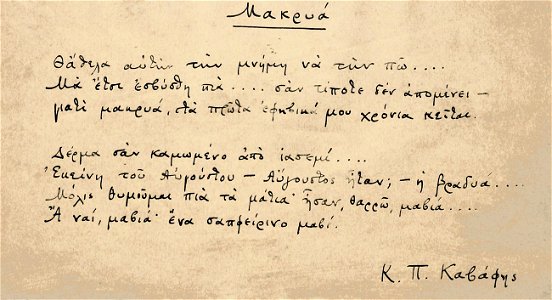 Μακρυά
Θάθελα αὐτὴν τὴν μνήμη νὰ τὴν πῶ....
Μὰ ἔτσι ἐσβύσθη πιὰ.... σὰν τίποτε δὲν ἀπομένει —
γιατὶ μακρυά, στὰ πρῶτα ἐφηβικά μου χρόνια κεῖται.
Δέρμα σὰν καμωμένο ἀπὸ ἰασεμί....
Ἐκείνη τοῦ Αὐγούστου — Αὔγουστος ἦταν; — ἡ βραδυά....
Μόλις θυμοῦμαι πιὰ τὰ μάτια· ἦσαν, θαρρῶ, μαβιά....
Ἂ ναί, μαβιά· ἕνα σαπφείρινο μαβί.
Κ. Π. Καβάφης